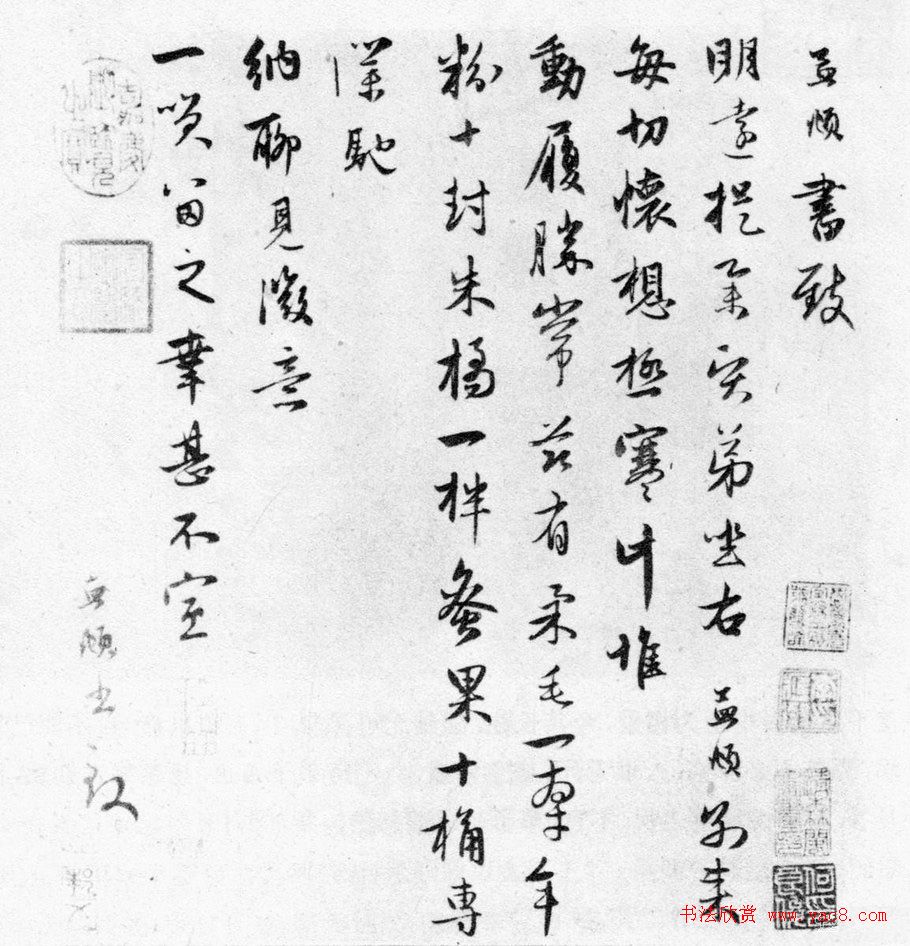 孟頫書致
明遠提舉賢弟坐右　孟頫別來
每切懷想極寒計惟
動履勝常茲有柔毛一牽年
粉十封朱橘一柈螯果十桶專
僕馳
納聊見微意
一笑留之幸甚不宣
孟頫書致
书法欣赏 www.yac8.com